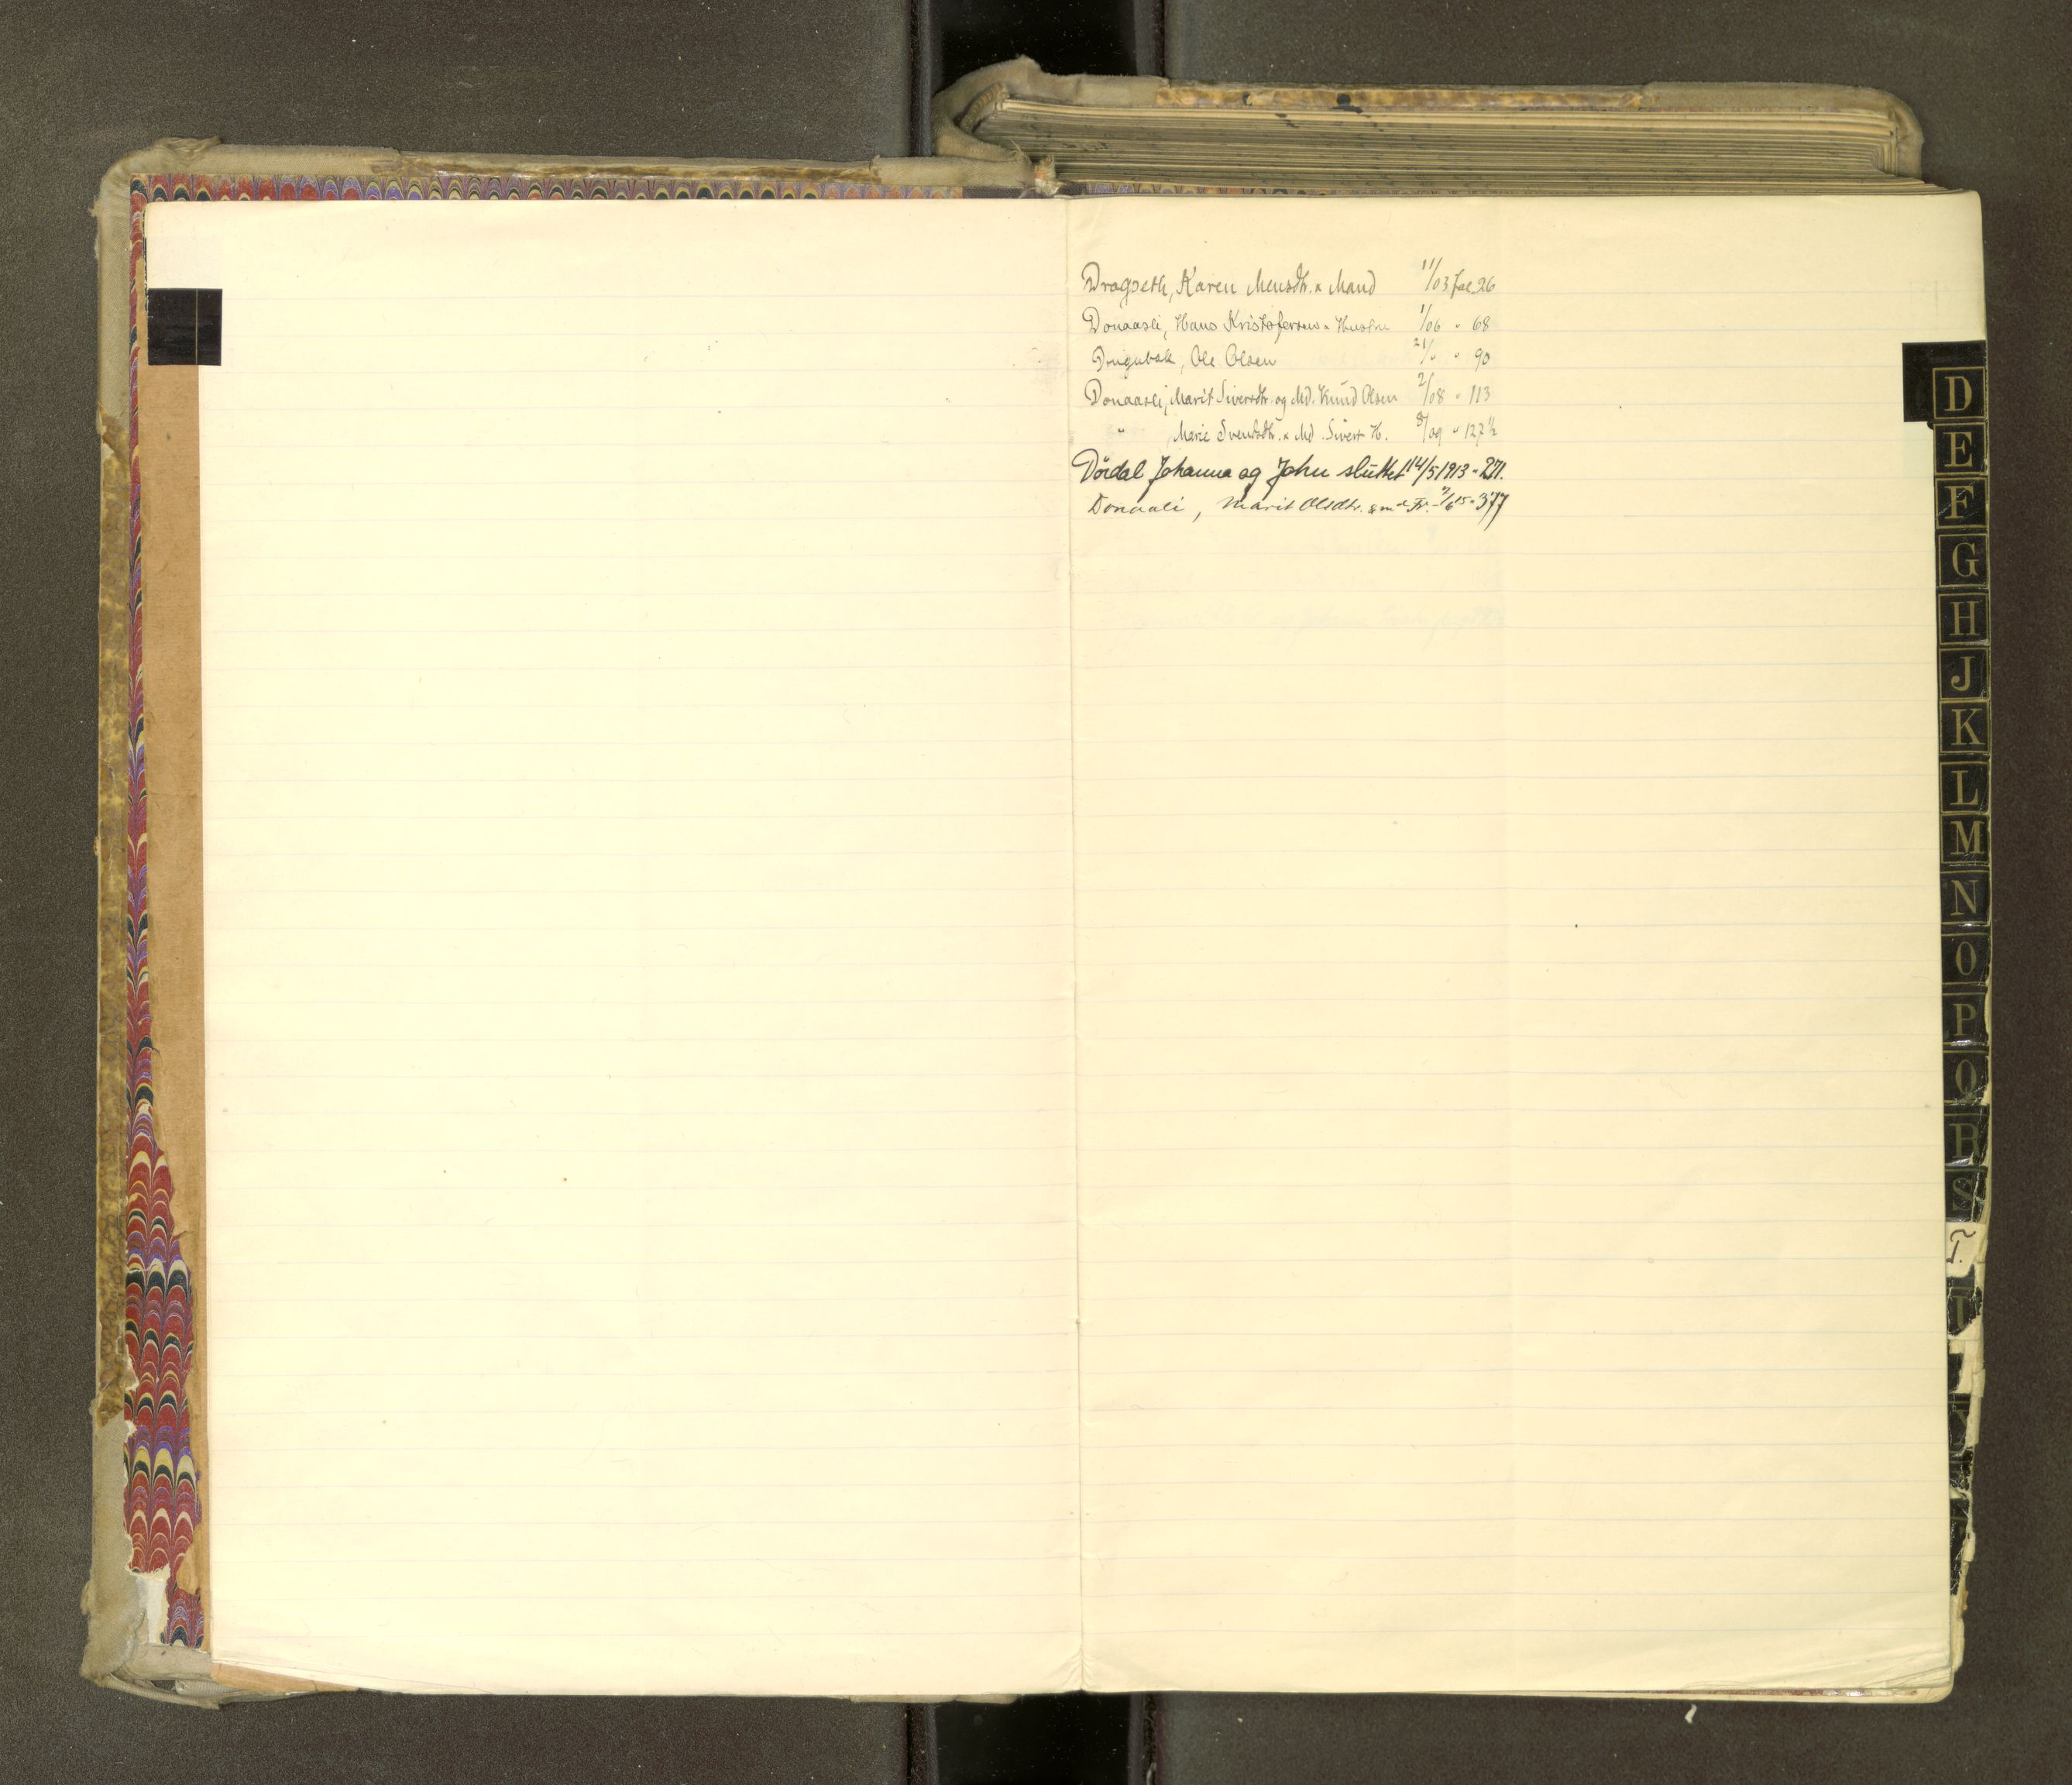 Dragseth, Karen Mensdtr. & Mand 11/03 fol 26
Donaasli, Hans Kristofersen & Hustru 1/06 " 68
Ole Olsen 21/" " 90
Donaasli, Marit Siversdtr. og Md. Knud Olsen 2/08 " 113
" Marie Svendsdtr. & Md. Sivert H. 8/09 " 127 1/2
Dördal Johanna og John sluttet 14/5 1913 " 271.
Donaali, Marit Olsdtr. 377
D
E
F
G
H
J
K
L
M
N
O
P
Q
R
S
T.